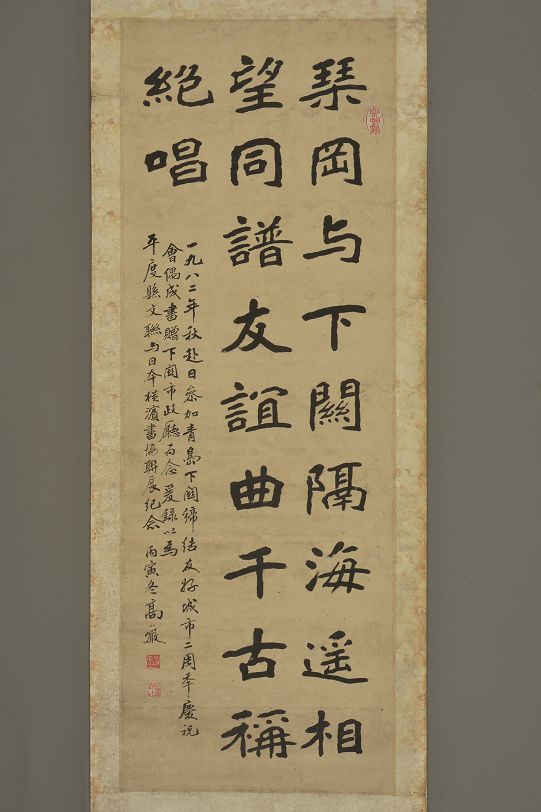 琹岡与下關隔海遥相
望同譜友誼曲千古稱
絶唱
一九八二年秋赴日叅加青島下関締结友好城市二周年慶祝
會偶成書贈下関市政聽为念爰録以馬
平度縣文聯与日本横濱書協聯展纪念 丙寅冬高巖